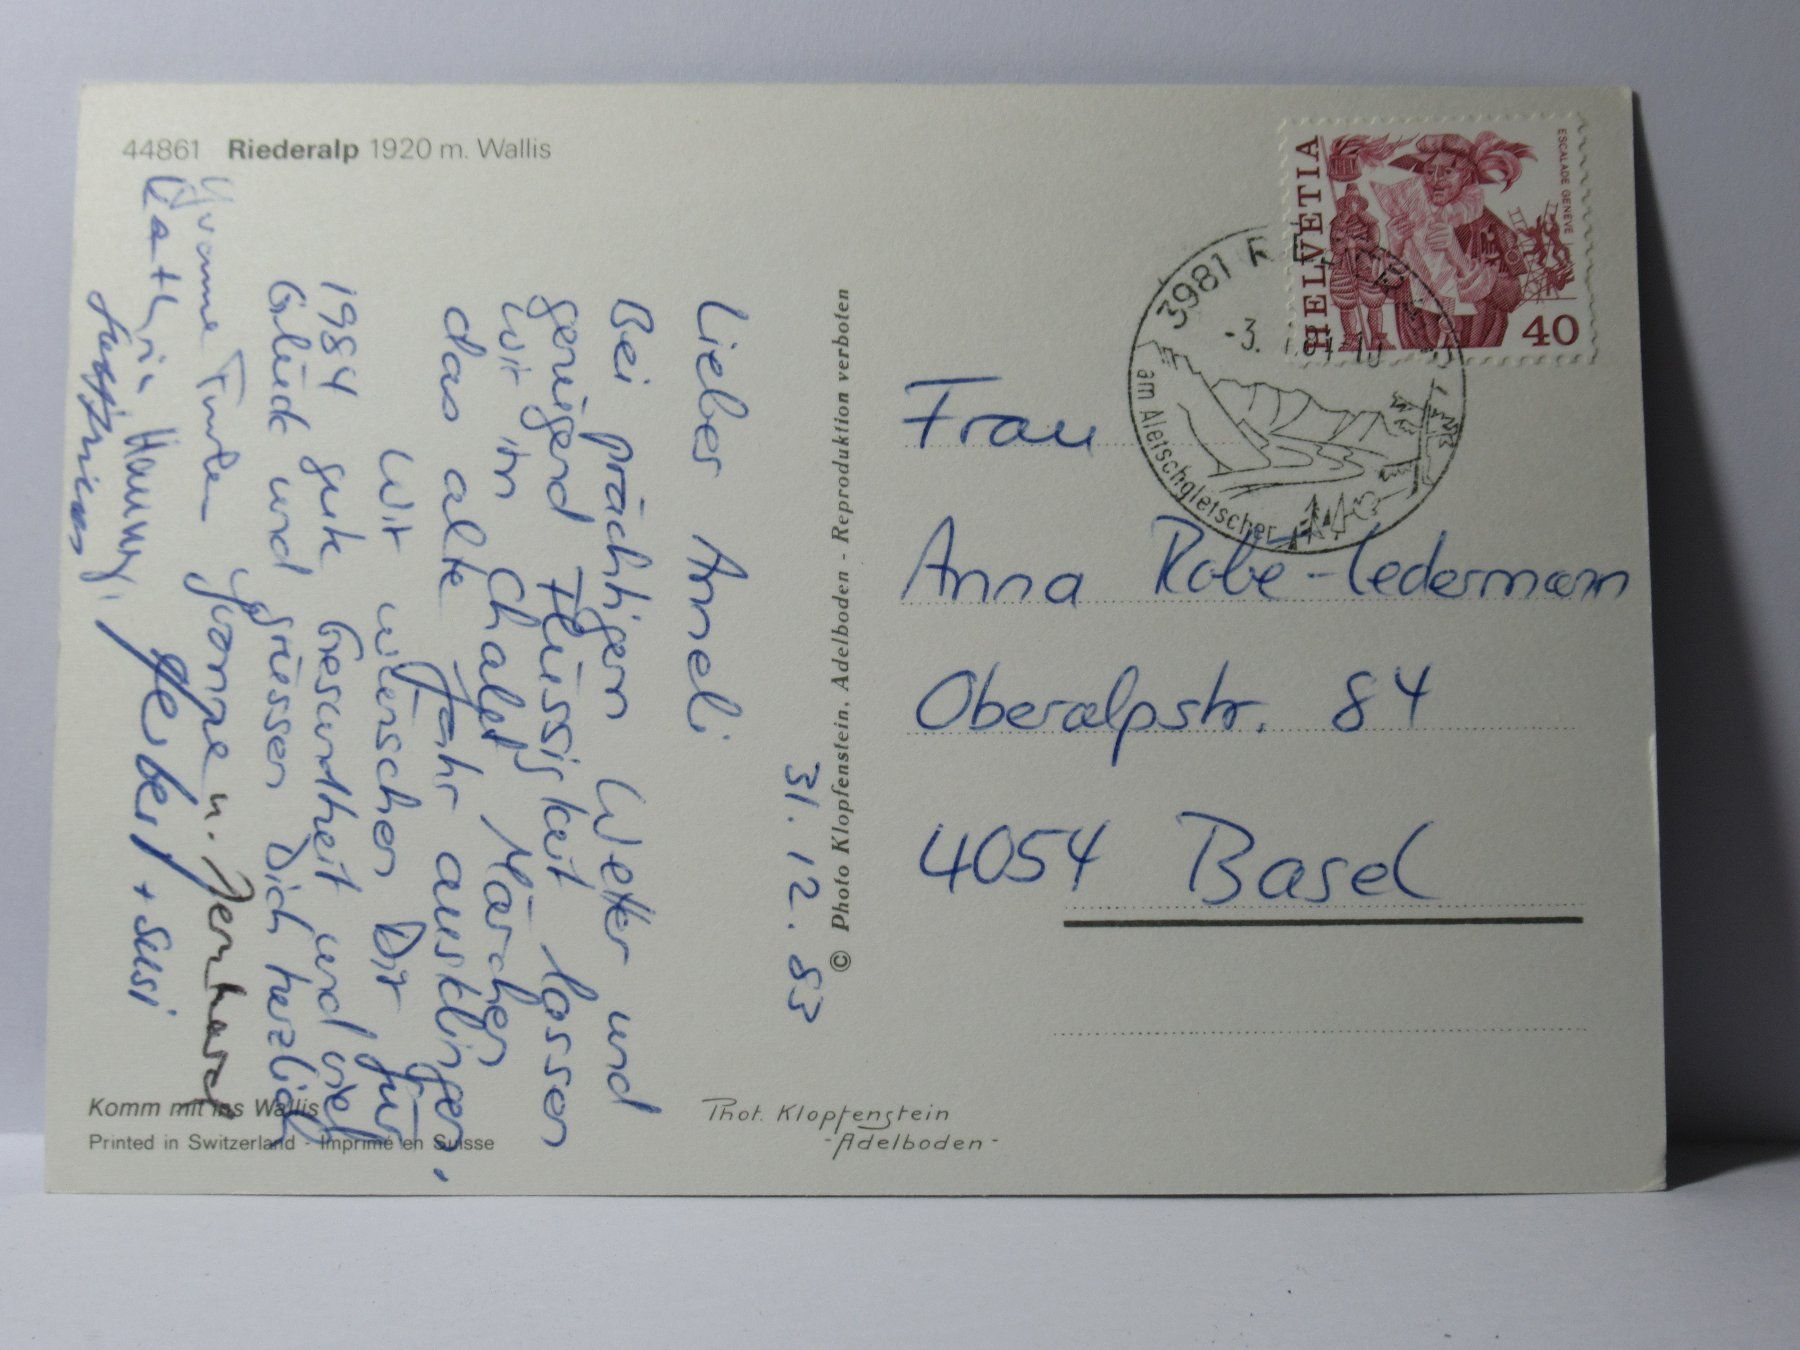 44861 Riederalp 1920 m. Wallis
31. 12. 83
Lieber Anneli
Bei prächtigem Wetter und
genügend Flüssigkeit lassen
wir im Chalet Märchen
das alte Jahr ausklingen.
Wir wünschen Dir für
1984 gute Gesundheit und viel
Glück und grüssen Dich herzlich
Yvonne
Yvonne u. Bernhard
Kathrin Hammy, Gerber + Susi
Komm mit ins Wallis
Printed in Switzerland - Imprimé en Suisse
© Photo Klopfenstein, Adelboden - Reproduktion verboten
Phot. Klopfenstein
- Adelboden -
HELVETIA
ESCALADE GENÈVE
40
3981
-3.
am Aletschgletscher
Frau
Anna Rabe-Ledermann
Oberalpstr. 84
4054 Basel